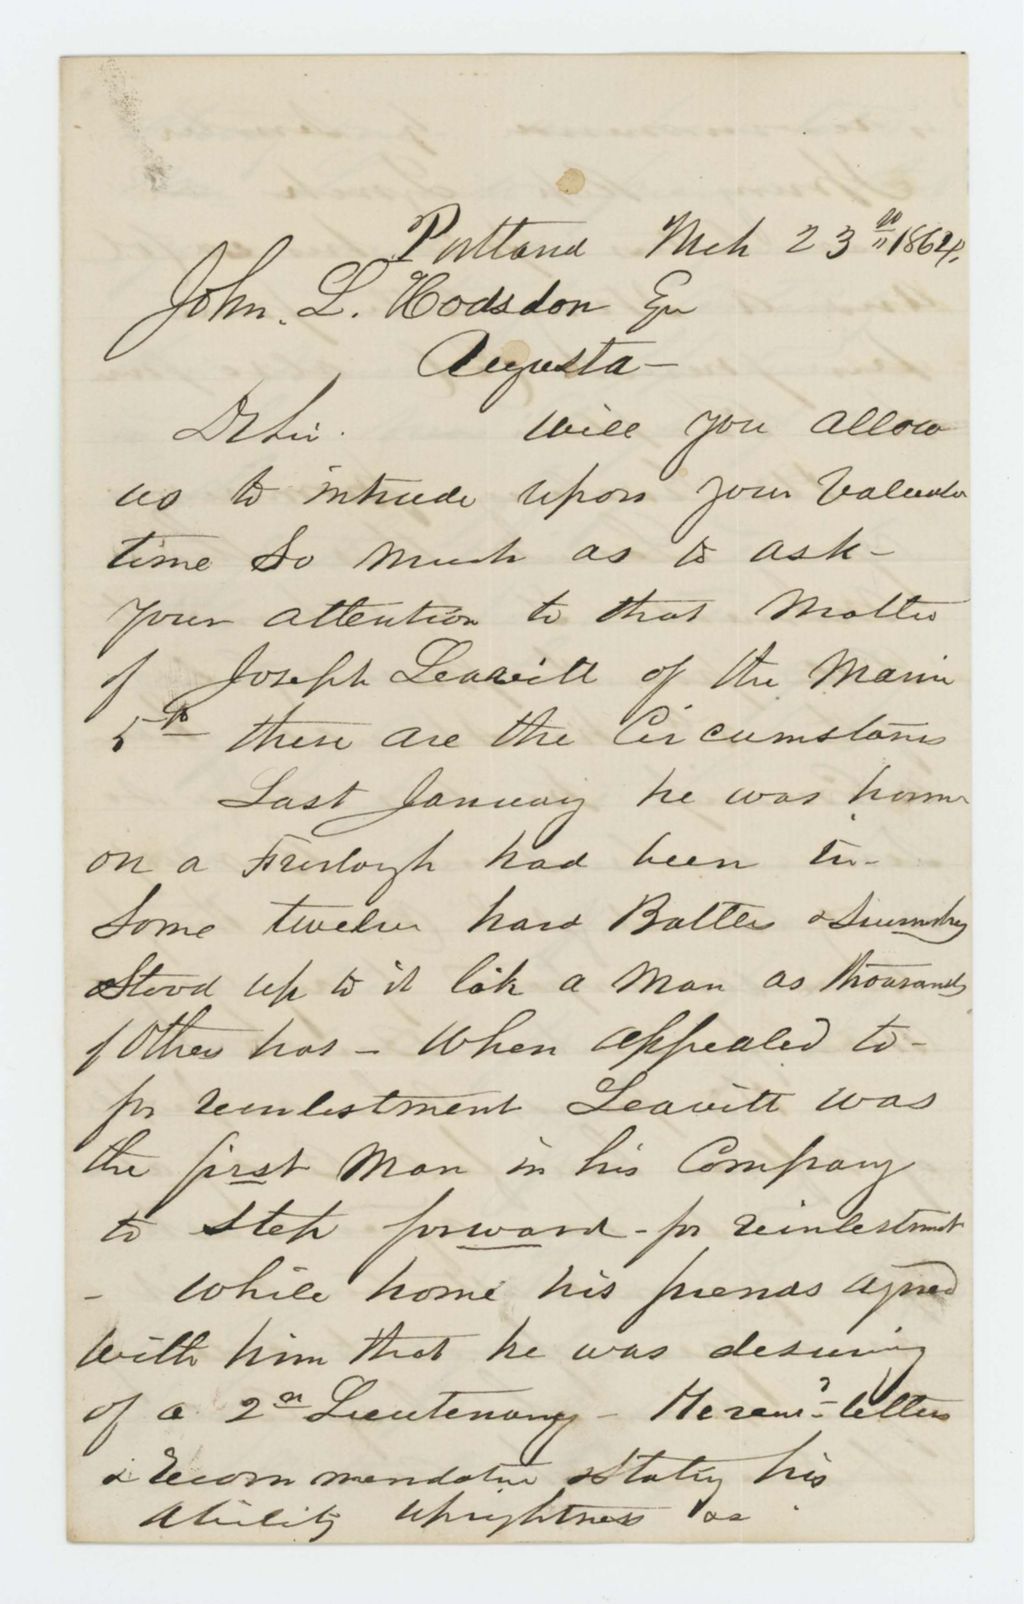 Portland Mch 23rd 1864.
John. L. Hodsdon Eqr
Augusta —
D Sir. Will you allow
us to intrude upon your Valuable
time so much as to ask -
your attention to that Matter
of Joseph Leavitt of the Maine
5th these are the Circumstances
Last January he was home
on a Furlough had been in -
Some twelve hard Battles &
Stood up to it like a Man as thousands
of Others has - When appealed to -
for reinlestment Leavitt was
the first Man in his Company
to step forward - for reinlestment
- While home his friends agreed
with him that he was deserving
of a 2nd Lieutenancy - He recd letters
& recommendation Stating his
Ability Uprightness &c